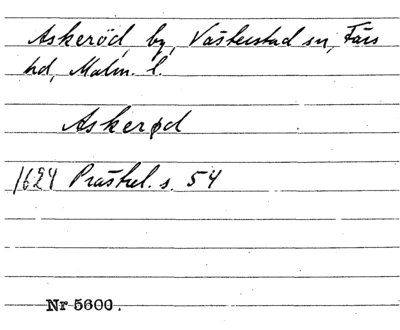 Askeröd, by, Västerstad sn, Färs
hd, Malm. l.
Askerød
1624 Prästrel. s. 54
Nr 5600.